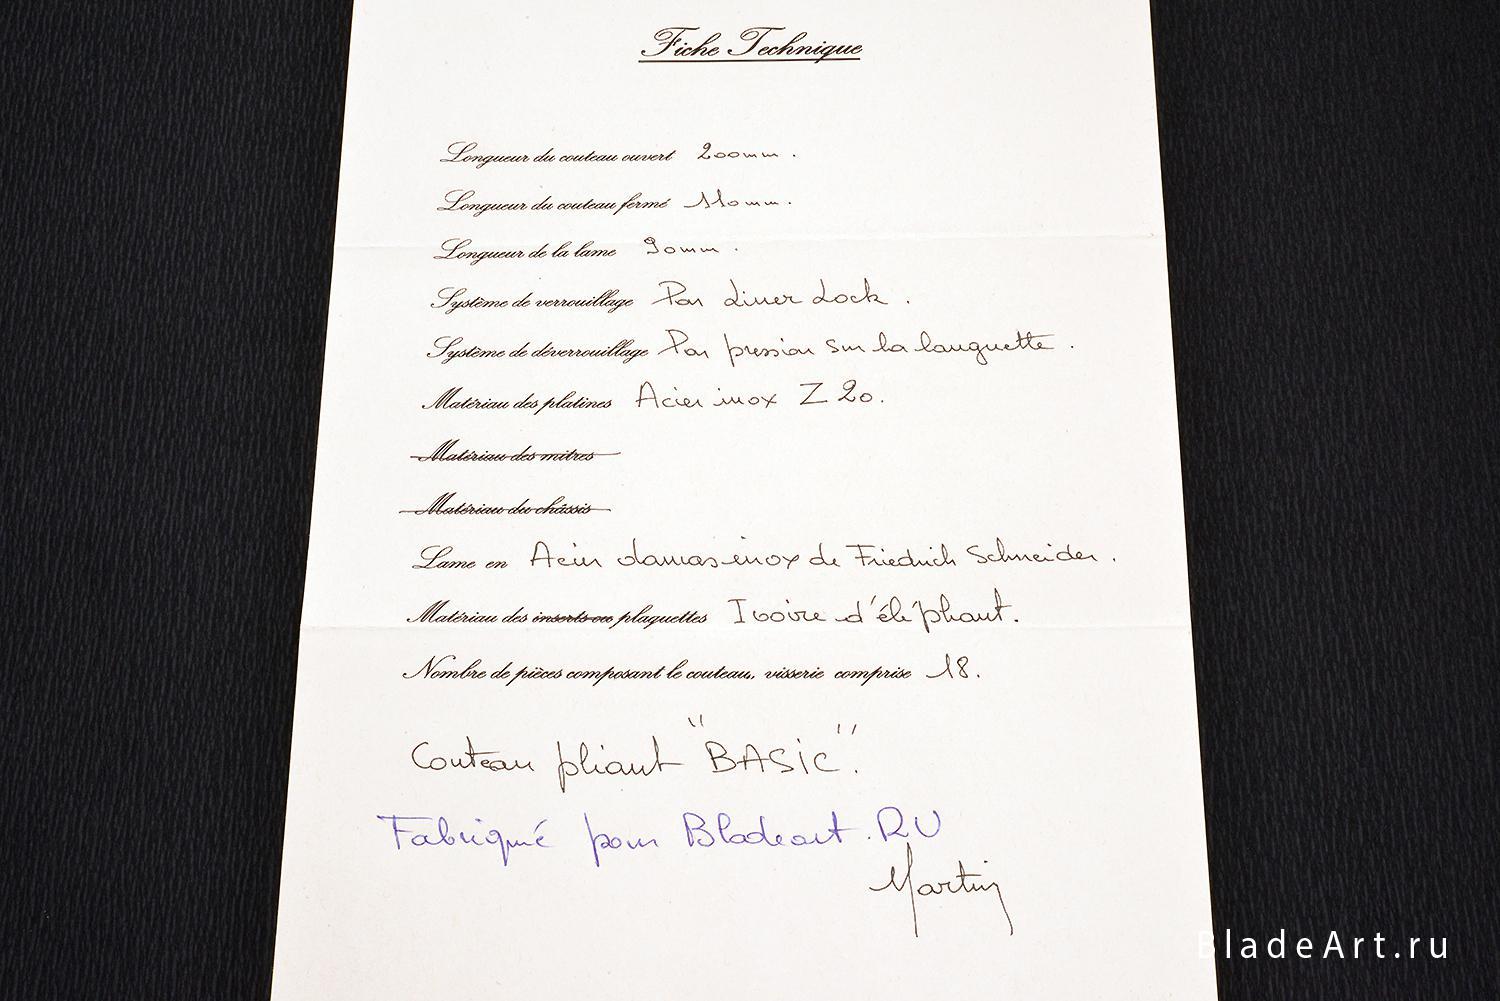 Fiche Technique
Longueur du couteau ouvert 200mm.
Longueur du couteau fermé 110mm.
Longueur de la lame 90mm.
Système de verrouillage Par Liner Lock.
Système de déverrouillage Par pression sur la languette.
Matériau des platines Acier inox Z20.
Matériau des mitres
Matériau du châssis
Lame en Acier damas inox de Friedrich Schneider.
Matériau des inserts ou plaquettes Ivoire d'éléphant.
Nombre de pièces composant le couteau, visserie comprise 18.
Couteau pliant "BASIC".
Fabriqué pour Bladeart.RU
Martin
BladeArt.ru